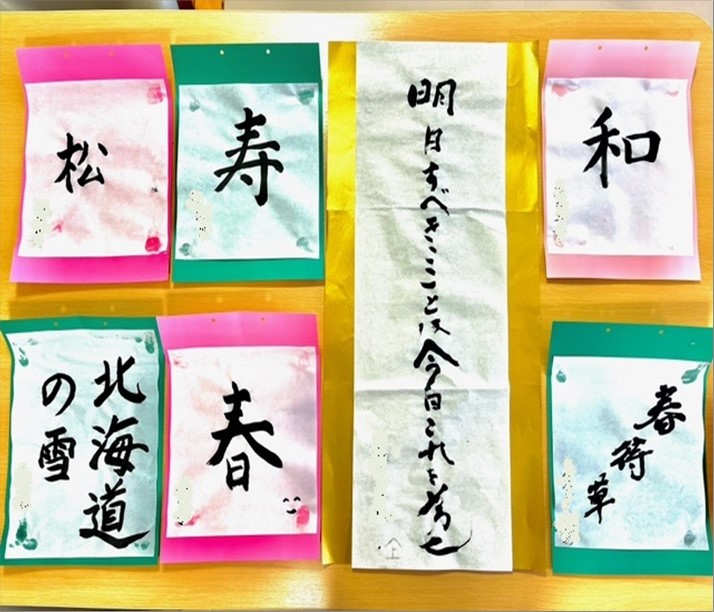 松
寿
明日すべきことは今日これを為せ
和
北海道
の雪
春
春待草